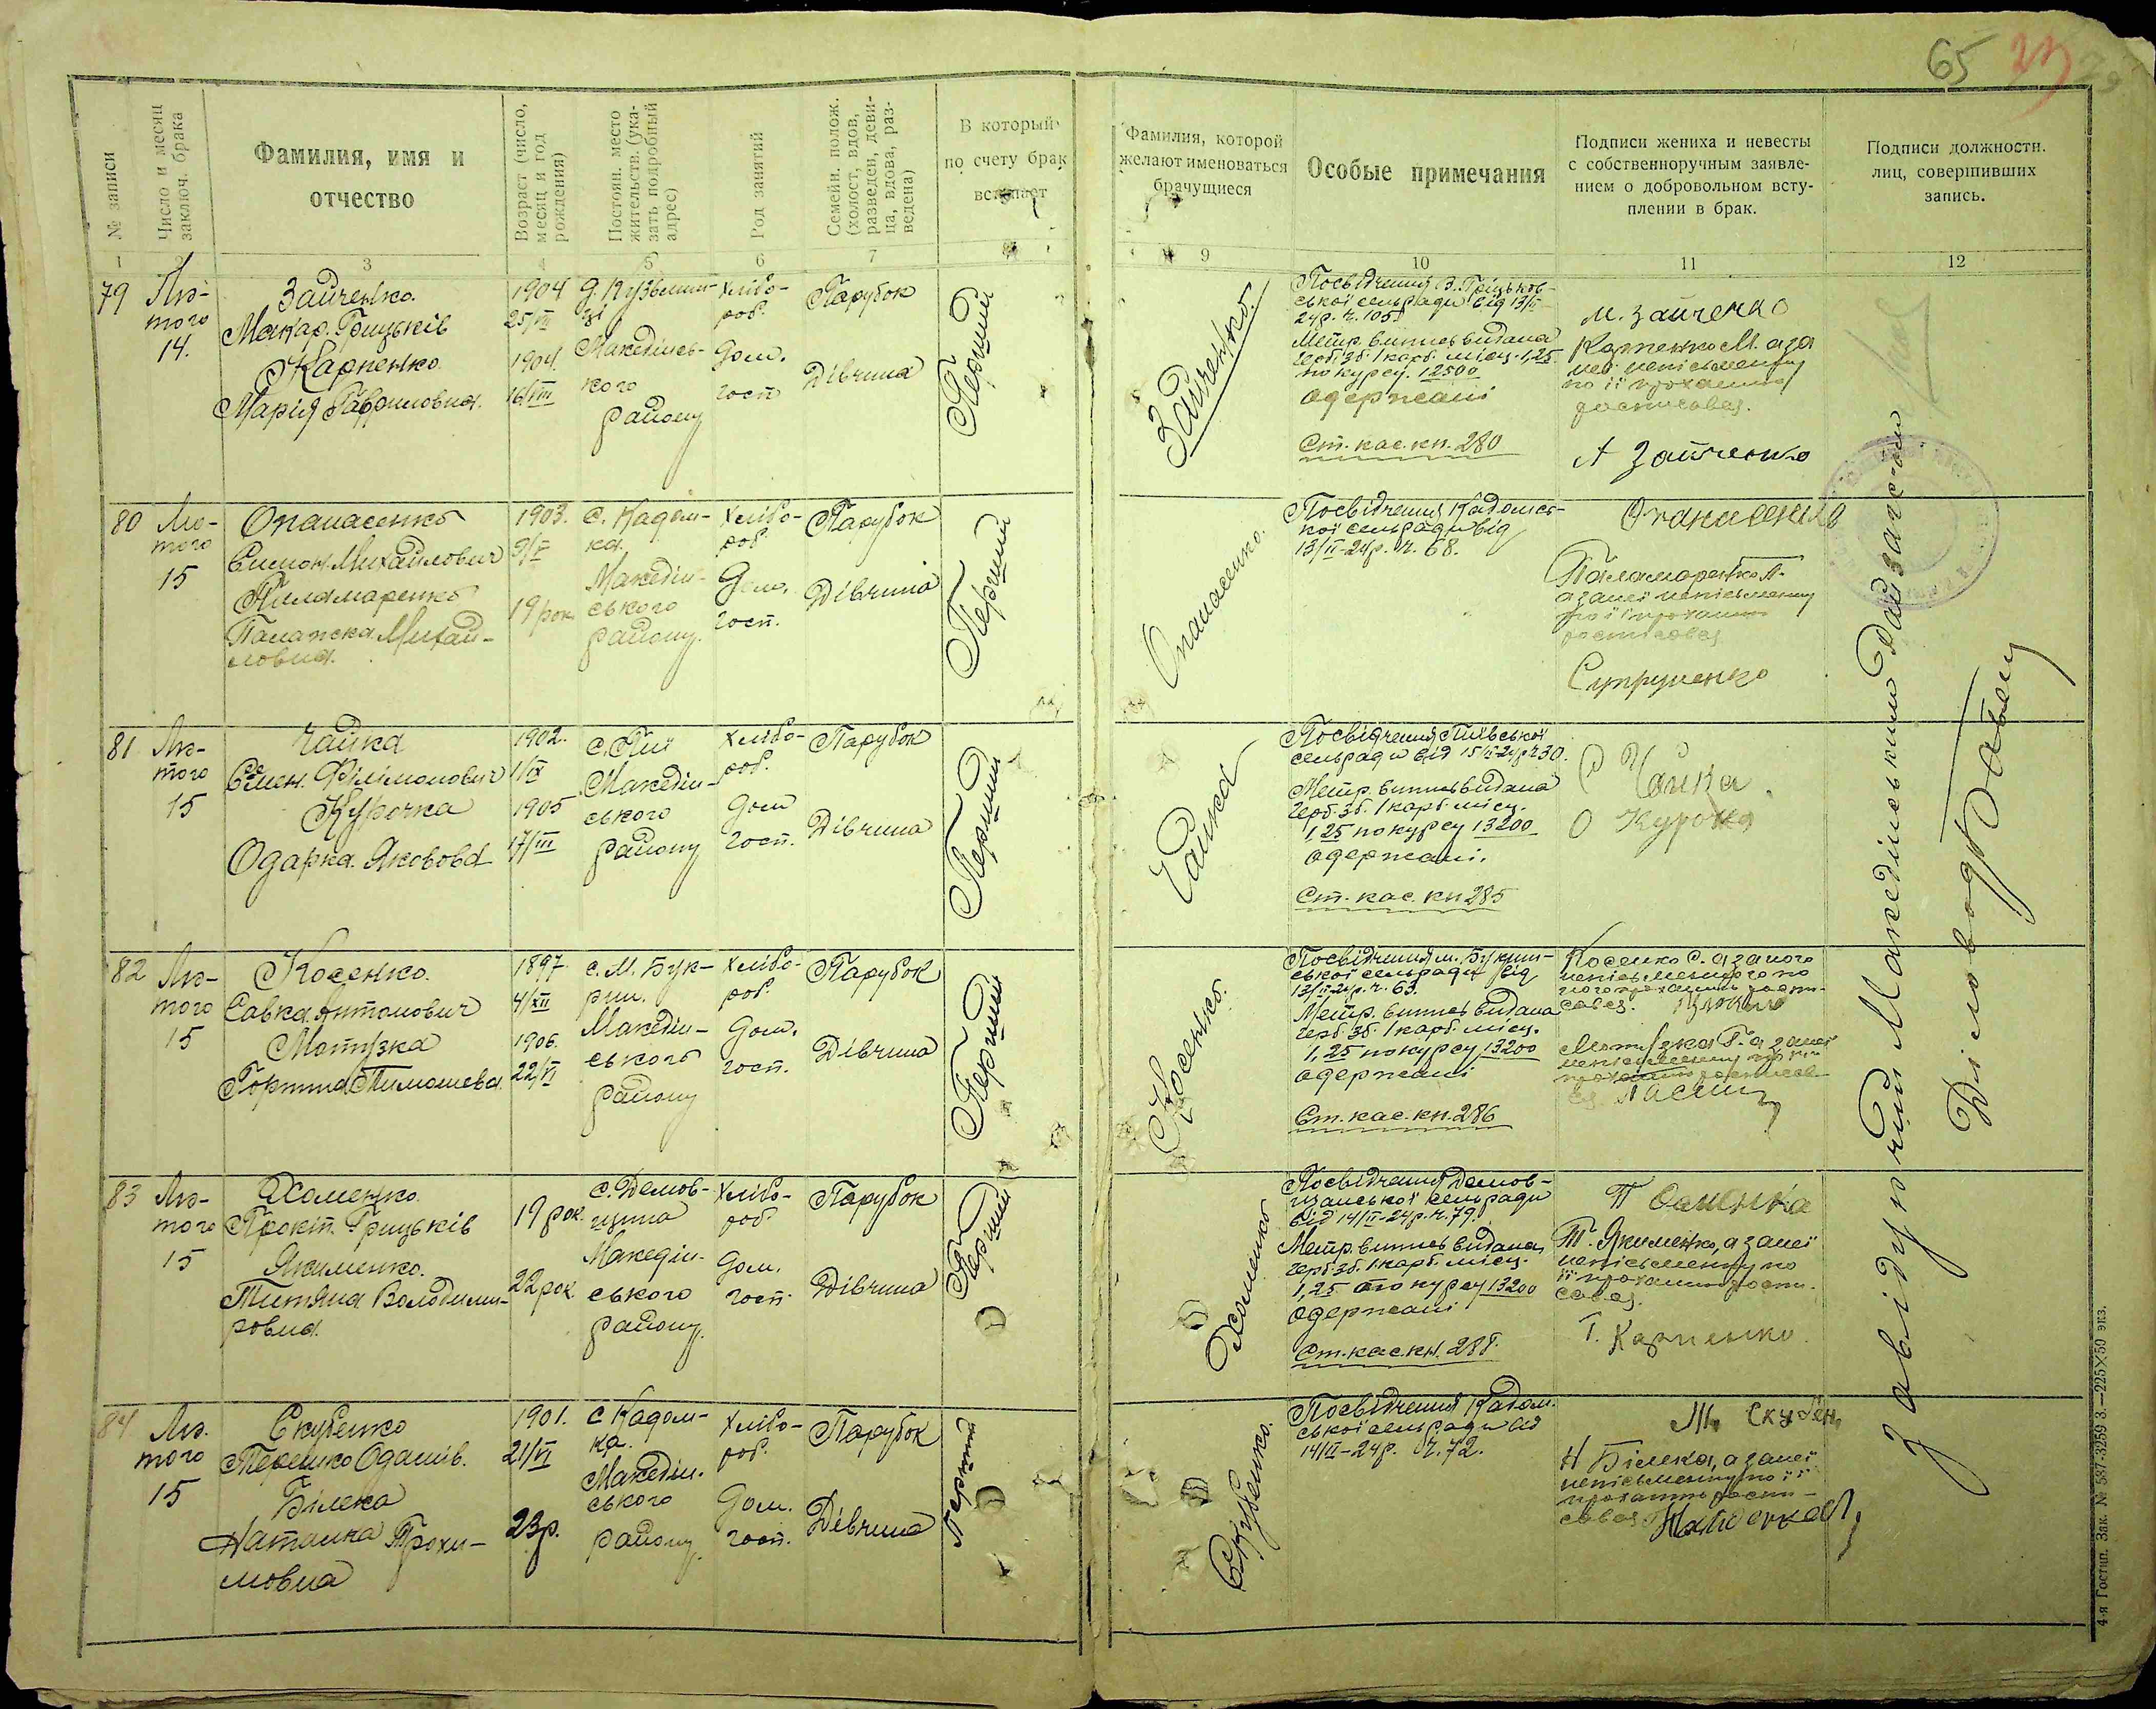 65
№ записи
Число и месяц
заключ. брака
Фамилия, имя и
отчество
Возраст (число,
месяц и год
рождения)
Постоян. место
жительств. (ука-
зать подробный
адрес)
Род занятий
Семейн. полож.
(холост, вдов,
разведен, деви-
ца, вдова, раз-
ведена)
В который
по счету брак
вступает
Фамилия, которой
желают именоваться
брачущиеся
Особые примечания
Подписи жениха и невесты
с собственноручным заявле-
нием о добровольном всту-
плении в брак.
Подписи должностн.
лиц, совершивших
запись.
1 2 3 4 5 6 7
9 10 11 12
79
Лю-
того
14.
Зайченко.
Макар. Грицьків
Карпенко
Марія Гавриловна.
1904
25/VII
1904.
16/VIII
Македінсь-
кого
району
Хлібо-
роб.
дом.
госп
Парубок
Дівчина
Перший
Зайченко.
Посвідчення З. Грицьков-
ської сельради від 13/II
24р. ч. 105.
Метр. виписъ видана
герб. зб. 1 карб. місц. 1,25.
по курсу. 12500
одержані
Ст. кас. кн. 280
М. Зайченко
Карпенко М. а за
неї неписьменну
по її проханню
росписався.
А Зайченко
80
Лю-
того
15
Опанасенко
Симон. Михайлович
Паламаренко
Палажка Михай-
ловна.
1903.
9/V
19 рок.
с. Кадом-
ка.
Македін-
ського
району.
Хлібо-
роб.
Дом.
госп.
Парубок
Дівчина
Перший
Опанасенко.
Посвідчення Кадомсь-
кої сельради від
13/II-24р. ч. 68.
Опанасенко
Паламаренко П.
а за неї неписьменну
по її проханню
росписався
Супруненко
81
Лю-
того
15
Чайка
Семен. Филимонович
Курочка
Одарка. Яковова
1902.
1/IX
1905
17/III
с. Пії
Македін-
ського
району
Хлібо-
роб.
Дом
Госп.
Парубок
Дівчина
Перший
Чайка
Посвідчення Пиївської
сельради від 15/II-24р ч 30.
Метр. виписъ видана
герб. зб. 1 карб. місц.
1,25 по курсу 13200
одержані.
Ст. кас. кн 285
С Чайка
О Курочка
82
Лю-
того
15
Косенко.
Савка. Антонович
Мотузка
Горпина Тимошева
1897
4/XII
1906.
22/VI
с. М. Бук-
рин.
Македін-
ського
району
Хлібо-
роб.
Дом.
госп.
Парубок
Дівчина
Перший
Косенко.
Посвідчення м. Букрин-
ської сельради від
13/II 24р. ч. 63.
Метр. виписъ видана
герб. зб. 1 карб. місц.
1,25 по курсу 13200
одержані
Ст. кас. кн. 286
Косенко С. а за него
неписьменного по
його проханню роспи-
савсь.
Мотузка Г. а за неї
83
Лю-
того
15
Хоменко.
Прокіп. Грицьків
Якименко.
Титяна Володими-
ровна.
19 рок.
22 рок
с. Демов-
щина
Македін-
ського
району.
Хлібо-
роб.
Дом.
госп.
Парубок
Дівчина
Перший
Хоменко
Посвідчення Демов-
щанської сельради
від 14/II-24р. ч. 79.
Метр. виписъ видана
герб. зб. 1 карб. місц.
1,25 по курсу 13200
одержані
Ст. кас. кн. 288.
Т. Якименко, а за неї
неписьменну по
її проханню роспи-
савсь.
Т. Карпенко.
84
Лю-
того
15
Скубенко
Терешко Одамів.
Білека
Наталка Трохи-
мовна
1901.
21/VI
23р.
с Кадом-
ка.
Македін-
ського
району
Хлібо-
роб.
Дом.
госп.
Парубок
Дівчина
Перший
Скубенко.
Посвідчення Кадом.
ської сельради від
14/II-24р. ч. 72.
Т. Скубен.
Н Білека, а за неї
неписьменну по її
проханню роспи-
савсь
Завідуючий Македінським Рай Загсом
Діловод
4-я Гостип. Зак. № 587-3259 З.—225×50 экз.